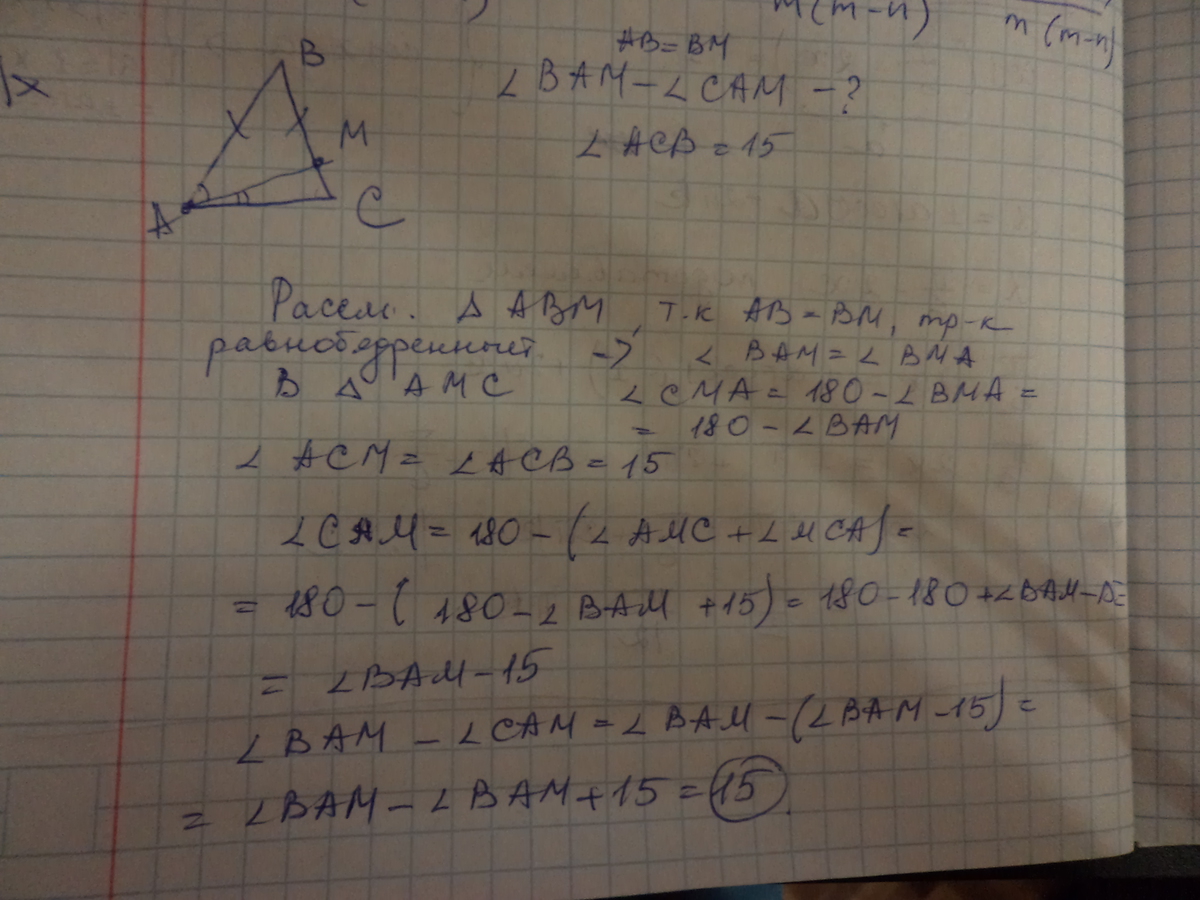 m(m-n)
n(m-n)
x
B
M
A
C
AB=BM
∠BAM-∠CAM-?
∠ACB=15
Рассм. △ ABM, т.к AB=BM, тр-к
равнобедренный -> ∠ BAM=∠ BMA
В △ AMC ∠CMA=180-∠BMA=
= 180-∠BAM
∠ ACM= ∠ACB=15
∠CAM= 180-(∠AMC+∠MCA)=
= 180-(180-∠BAM+15)=180-180+∠BAM-15=
= ∠BAM-15
∠BAM-∠CAM=∠BAM-(∠BAM-15)=
= ∠BAM-∠BAM+15=15.